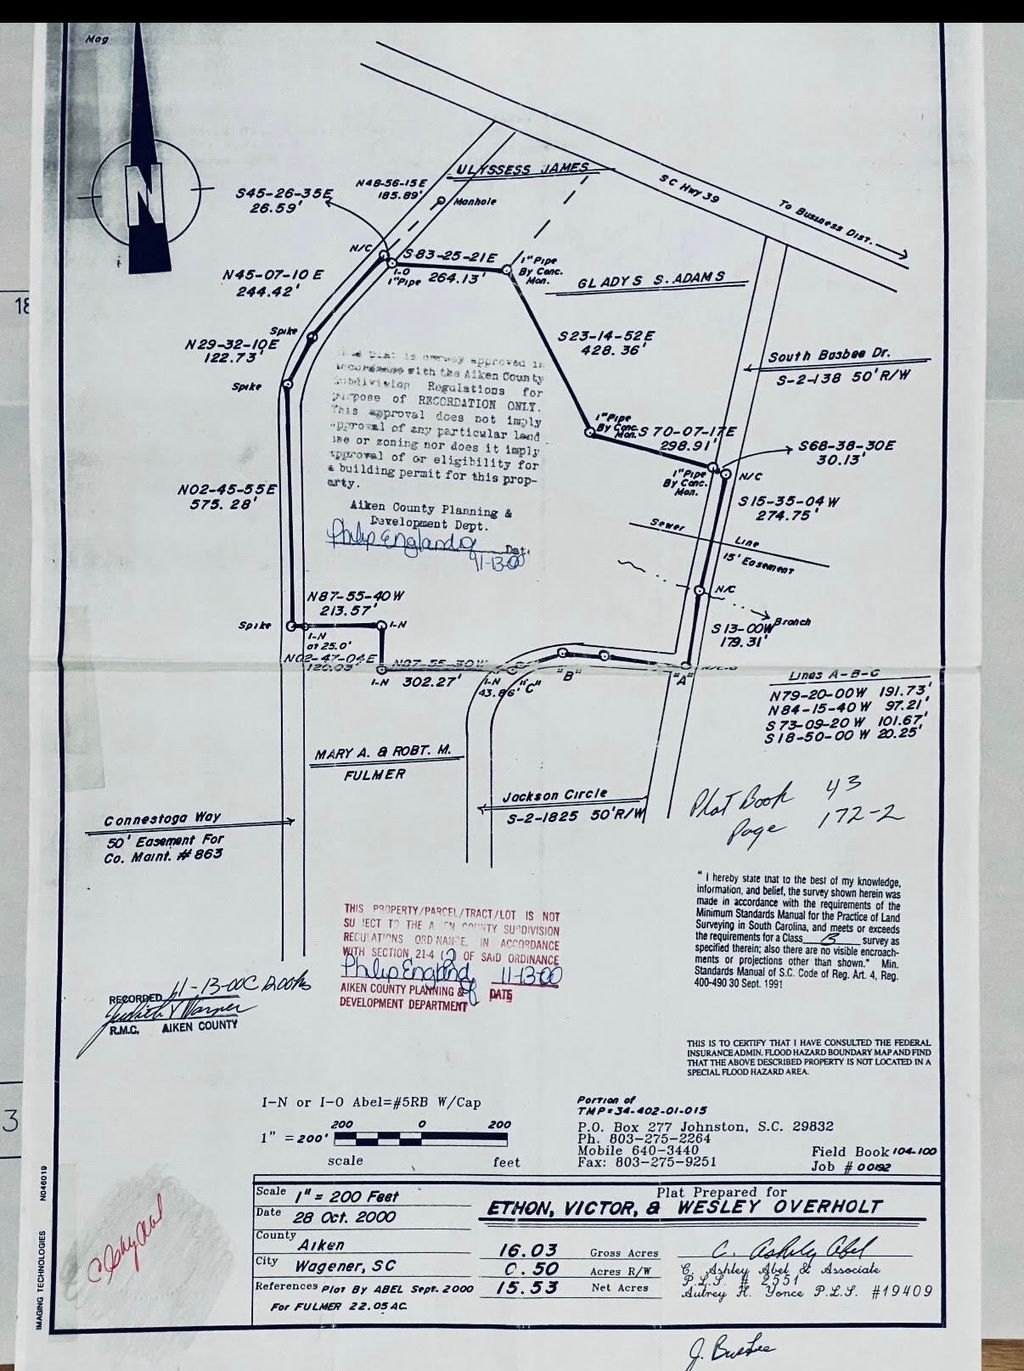 Mag
N
18
3
ULYSSESS JAMES
SC Hwy 39
To Bussness Dist.
N48-56-15E
185.89'
Manhole
S45-26-35E
26.59'
N/C
S 83-25-21E
264.13'
I-O
1" Pipe
1" Pipe
By Conc.
Mon.
GLADYS S. ADAMS
N45-07-10 E
244.42'
Spike
N29-32-10E
122.73'
Spike
S23-14-52E
428.36'
South Busbee Dr.
S-2-138 50' R/W
1" Pipe
By Conc.
Mon.
S 70-07-17E
298.91'
S68-38-30E
30.13'
1" Pipe
By Conc.
Mon.
N/C
plat is approved in
with the Aiken County
Subdivision Regulations for
purpose of RECORDATION ONLY.
This approval does not imply
approval of any particular land
use or zoning nor does it imply
approval of or eligibility for
a building permit for this prop-
erty.
Aiken County Planning &
Development Dept.
Philip England
Dat.
11-13-00
N02-45-55E
575. 28'
S15-35-04W
274.75'
Sewer Line
15' Easement
N/C
Branch
S 13-00W
179.31'
N87-55-40 W
213.57'
Spike
I-N
at 25.0'
I-N
N02-47-04E
I-N
302.27'
I-N
43.86'
"C"
"B"
"A"
Lines A-B-C
N79-20-00W 191.73'
N84-15-40 W 97.21'
S 73-09-20 W 101.67'
S 18-50-00 W 20.25'
MARY A. & ROBT. M.
FULMER
Jackson Circle
S-2-1825 50' R/W
Connestoga Way
50' Easement For
Co. Maint. # 863
Plat Book 43
Page 172-2
" I hereby state that to the best of my knowledge,
information, and belief, the survey shown herein was
made in accordance with the requirements of the
Minimum Standards Manual for the Practice of Land
Surveying in South Carolina, and meets or exceeds
the requirements for a Class B survey as
specified therein; also there are no visible encroach-
ments or projections other than shown." Min.
Standards Manual of S.C. Code of Reg. Art. 4, Reg.
400-490 30 Sept. 1991
THIS PROPERTY/PARCEL/TRACT/LOT IS NOT
SU JECT TO THE A EN COUNTY SUBDIVISION
REGULATIONS ORDNANCE, IN ACCORDANCE
WITH SECTION 21-4 OF SAID ORDINANCE
Philip England 11-13-00
AIKEN COUNTY PLANNING & DATE
DEVELOPMENT DEPARTMENT
RECORDED 11-13-00
R.M.C. AIKEN COUNTY
THIS IS TO CERTIFY THAT I HAVE CONSULTED THE FEDERAL
INSURANCE ADMIN. FLOOD HAZARD BOUNDARY MAP AND FIND
THAT THE ABOVE DESCRIBED PROPERTY IS NOT LOCATED IN A
SPECIAL FLOOD HAZARD AREA.
I-N or I-O Abel=#5RB W/Cap
1" = 200'
200 0 200
scale feet
Portion of
TMP#34-402-01-015
P.O. Box 277 Johnston, S.C. 29832
Ph. 803-275-2264
Mobile 640-3440
Fax: 803-275-9251
Field Book 104-100
Job # 00192
Scale 1" = 200 Feet
Date 28 Oct. 2000
County Aiken
City Wagener, SC
References Plat By ABEL Sept. 2000
For FULMER 22.05 AC.
Plat Prepared for
ETHON, VICTOR, & WESLEY OVERHOLT
16.03 Gross Acres
0.50 Acres R/W
15.53 Net Acres
C. Ashley Abel
C. Ashley Abel & Associate
P.L.S. # 2551
Autrey H. Yonce P.L.S. #19409
C Ashley Abel
IMAGING TECHNOLOGIES ND46019
J. Busbee